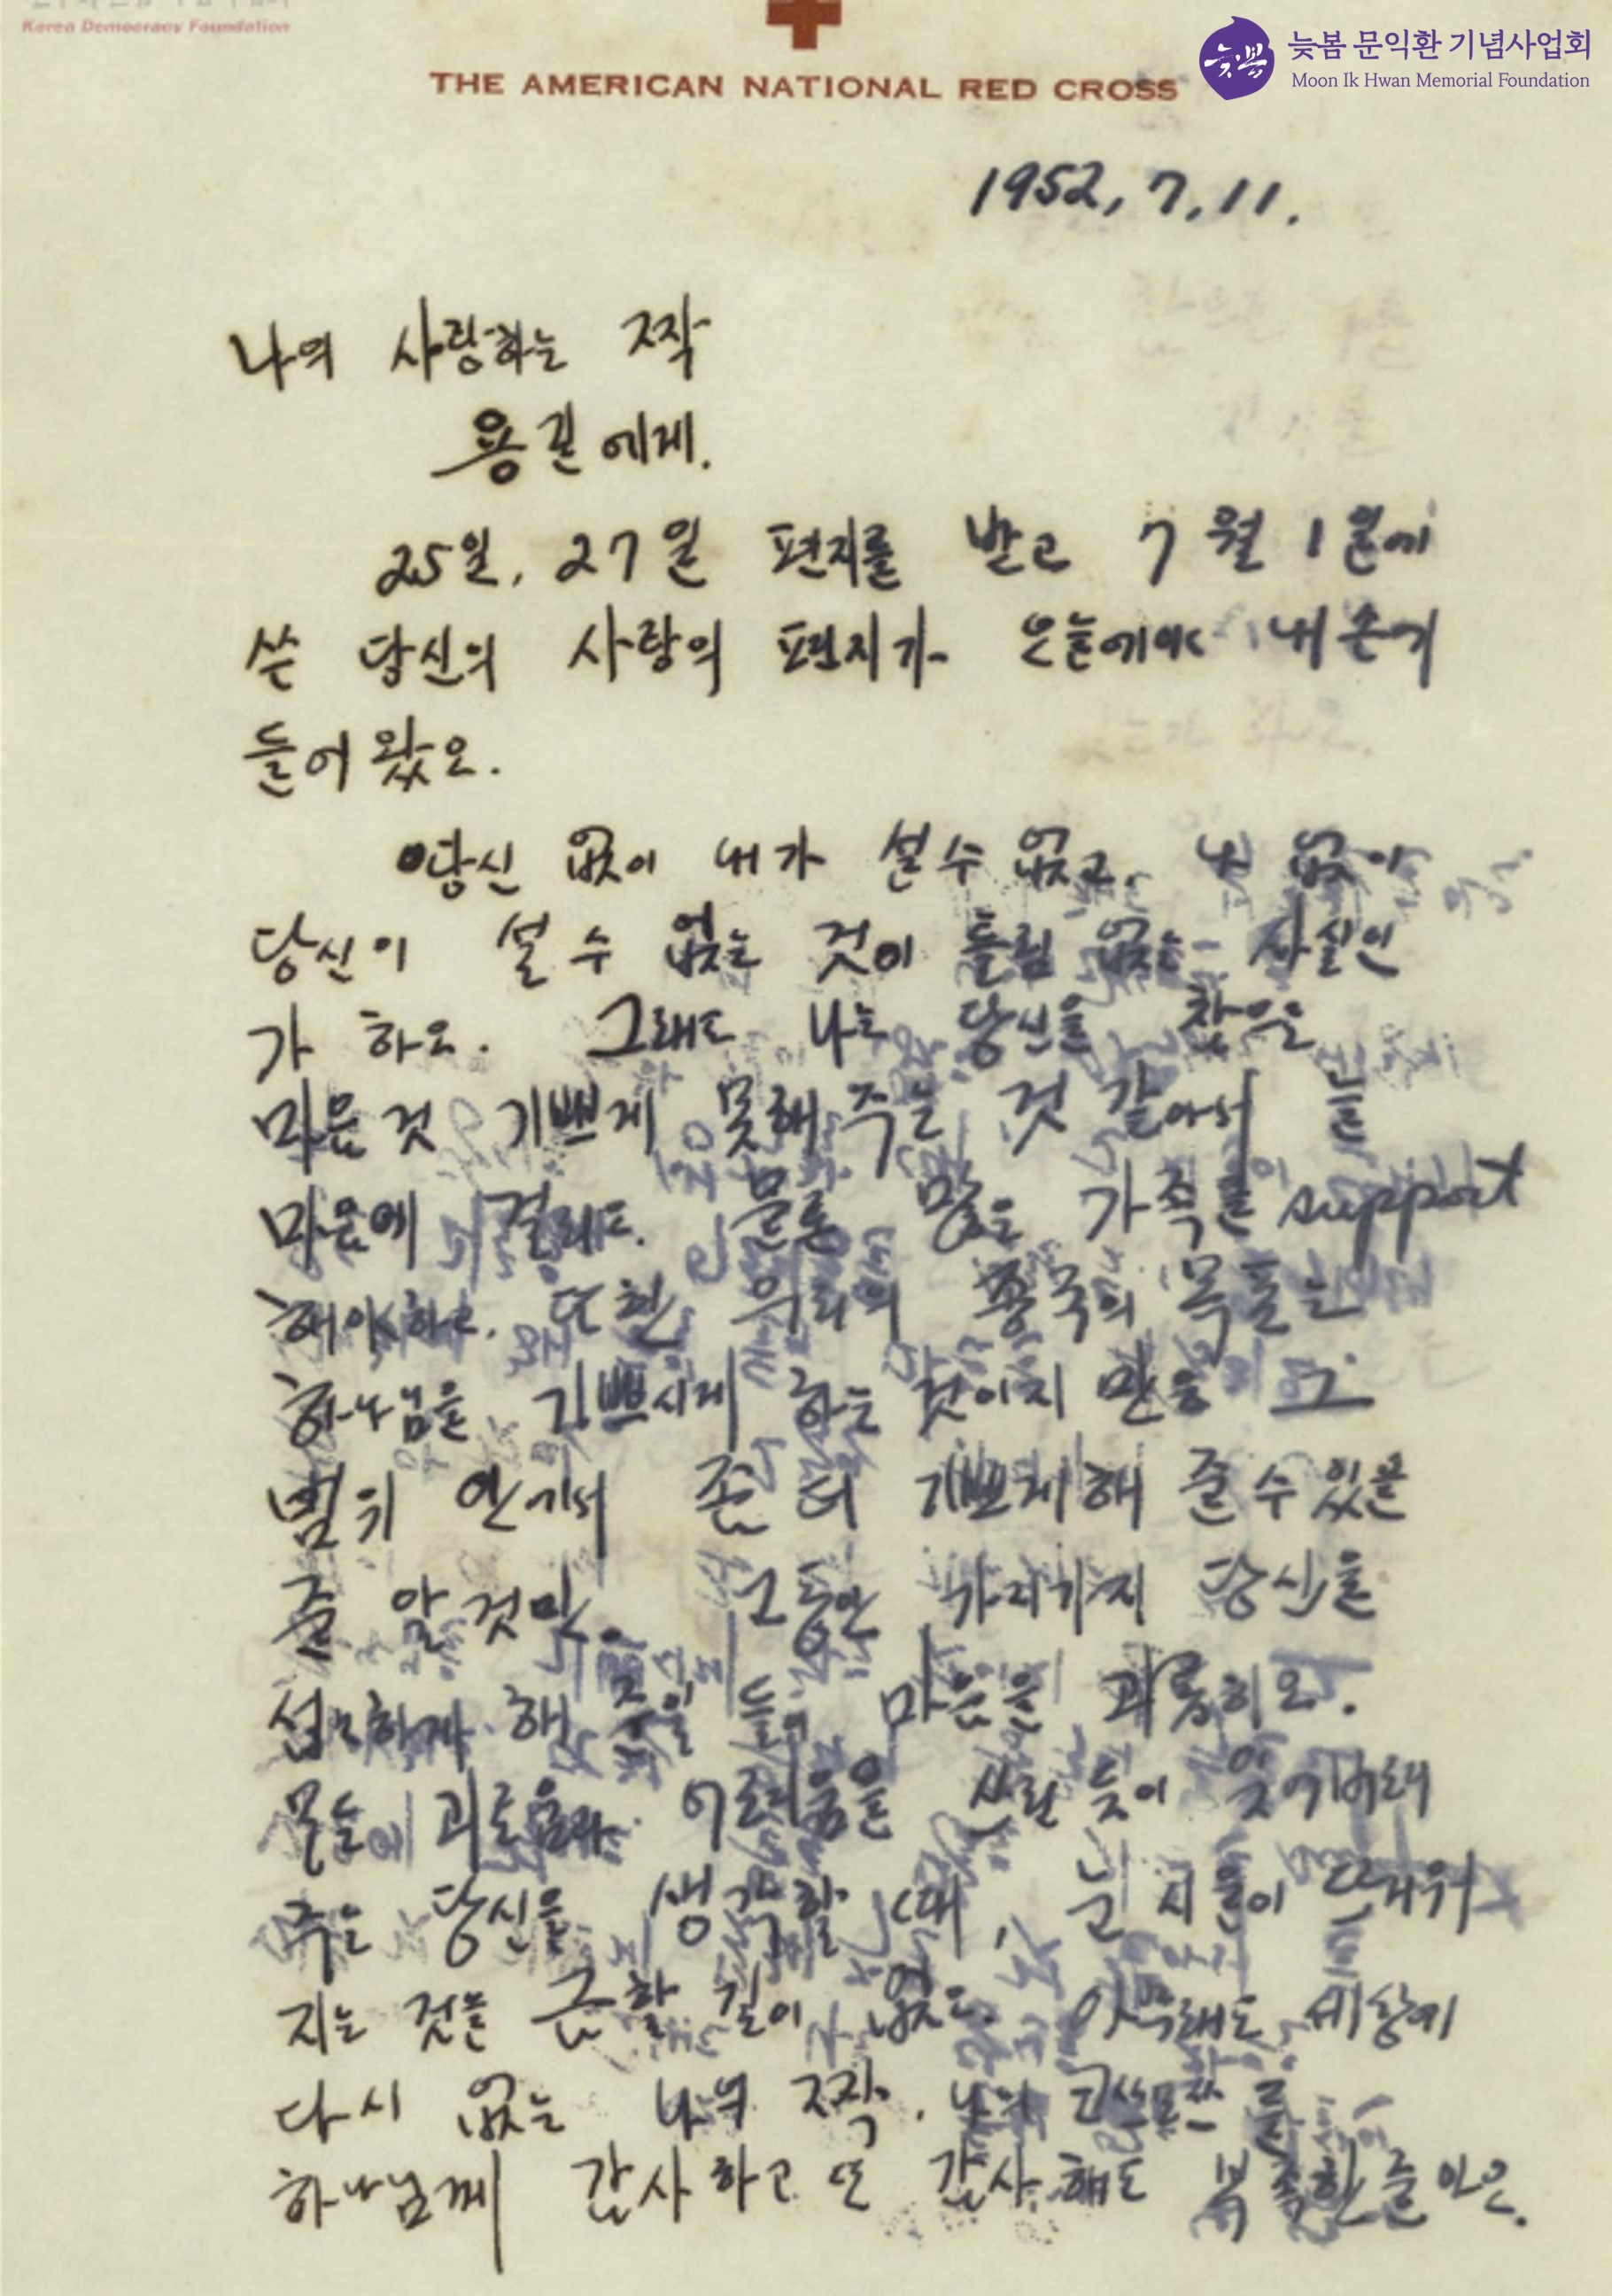 Korea Democracy Foundation
늦봄
늦봄 문익환 기념사업회
Moon Ik Hwan Memorial Foundation
THE AMERICAN NATIONAL RED CROSS
1952, 7, 11.
나의 사랑하는 짝
용길에게.
25일, 27일 편지를 받고 7월 1일에
쓴 당신의 사랑의 편지가 오늘에야 내 손에
들어왔오.
당신 없이 내가 설 수 없고, 나 없이
당신이 설 수 없는 것이 틀림 없는 사실인
가 하오. 그래도 나는 당신을
마음것 기쁘게 못해 주는 것 같아서 늘
마음에 걸리오. 물론 많은 가족을 support
해야 하오. 또한 우리의 종국의 목표는
하나님을 기쁘시게 하는 것이지만은 그
범위 안에서 좀 더 기쁘게 해 줄 수 있을
줄 알것만. 그동안 가지가지 당신을
섭섭하게 해 준 일 들이 마음을 괴롭히오.
모든 괴로움과 어려움을 산뜻이 잊어버려
주는 당신을 생각할 때, 눈시울이 뜨거워
지는 것을 금할 길이 없오. 아무래도 세상에
다시 없는 나의 짝. 나의 를
하나님께 감사하고 또 감사해도 부족한 줄 아오.